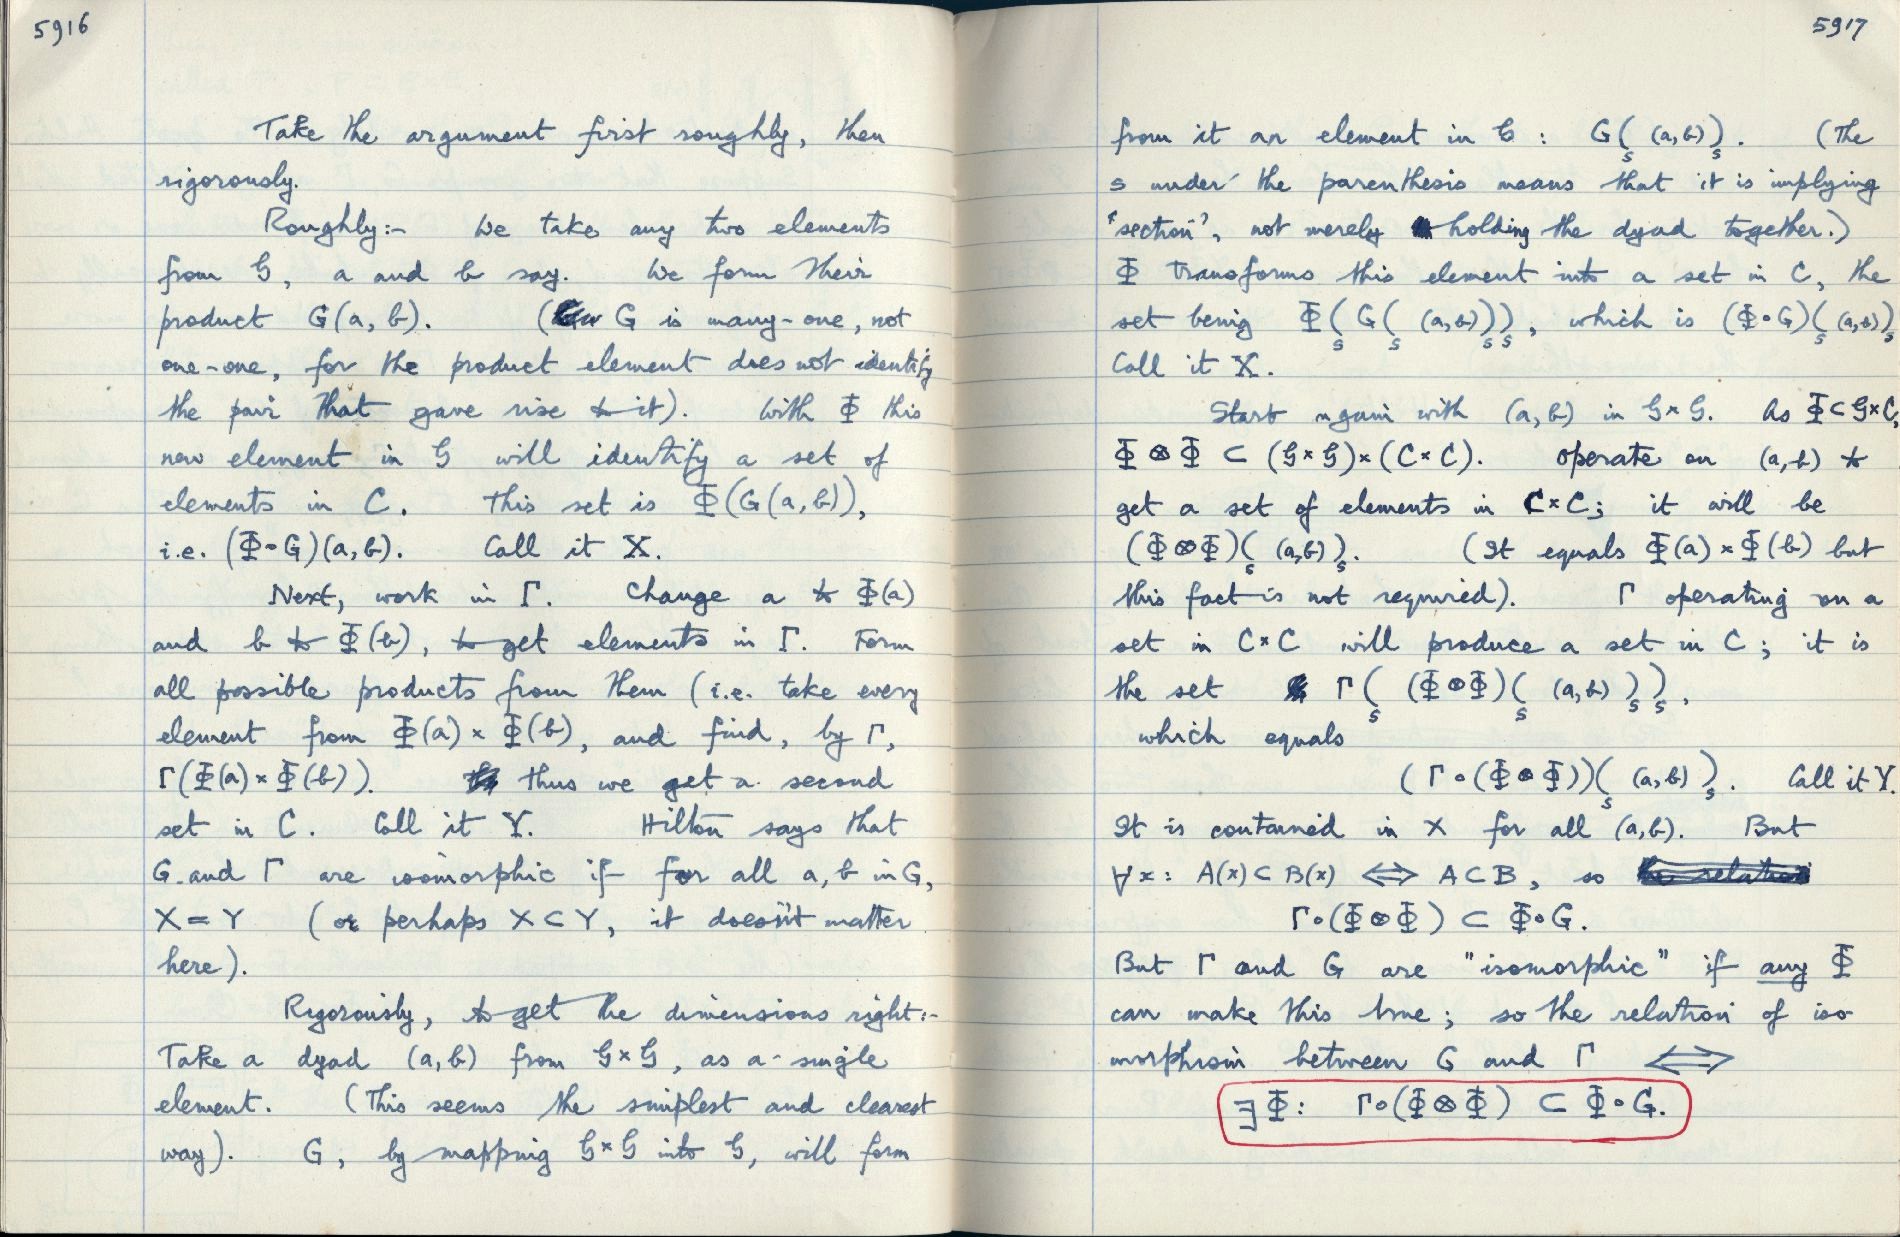 5916
Take the argument first roughly, then
rigorously.
Roughly:- We take any two elements
from G, a and b say. We form their
product G(a, b). ( G is many-one, not
one-one, for the product element does not identify
the pair that gave rise to it). With Φ this
new element in G will identify a set of
elements in C. This set is Φ(G(a, b)),
i.e. (Φ∘G)(a, b). Call it X.
Next, work in Γ. Change a to Φ(a)
and b to Φ(b), to get elements in Γ. Form
all possible products from them (i.e. take every
element from Φ(a) × Φ(b), and find, by Γ,
Γ(Φ(a) × Φ(b)). thus we get a second
set in C. Call it Y. Hilton says that
G and Γ are isomorphic if for all a, b in G,
X = Y (or perhaps X ⊂ Y, it doesn't matter
here).
Rigorously, to get the dimensions right:-
Take a dyad (a, b) from G×G, as a single
element. (This seems the simplest and clearest
way). G, by mapping G×G into G, will form
5917
from it an element in G : G(ₛ (a, b) )ₛ. (The
s under the parenthesis means that it is implying
'section', not merely holding the dyad together.)
Φ transforms this element into a set in C, the
set being Φ(ₛ G(ₛ (a, b) )ₛ)ₛ, which is (Φ∘G)(ₛ (a, b) )ₛ
Call it X.
Start again with (a, b) in G×G. As Φ⊂G×C,
Φ⊗Φ ⊂ (G×G)×(C×C). Operate on (a, b) to
get a set of elements in C×C; it will be
(Φ⊗Φ)(ₛ (a, b) )ₛ. (It equals Φ(a) × Φ(b) but
this fact is not required). Γ operating on a
set in C×C will produce a set in C; it is
the set Γ(ₛ (Φ⊗Φ)(ₛ (a, b) )ₛ)ₛ,
which equals
(Γ∘(Φ⊗Φ))(ₛ (a, b) )ₛ. Call it Y.
It is contained in X for all (a, b). But
∀x: A(x) ⊂ B(x) ⟺ A⊂B, so
Γ∘(Φ⊗Φ) ⊂ Φ∘G.
But Γ and G are "isomorphic" if any Φ
can make this true; so the relation of iso-
morphism between G and Γ ⟺
∃Φ: Γ∘(Φ⊗Φ) ⊂ Φ∘G.